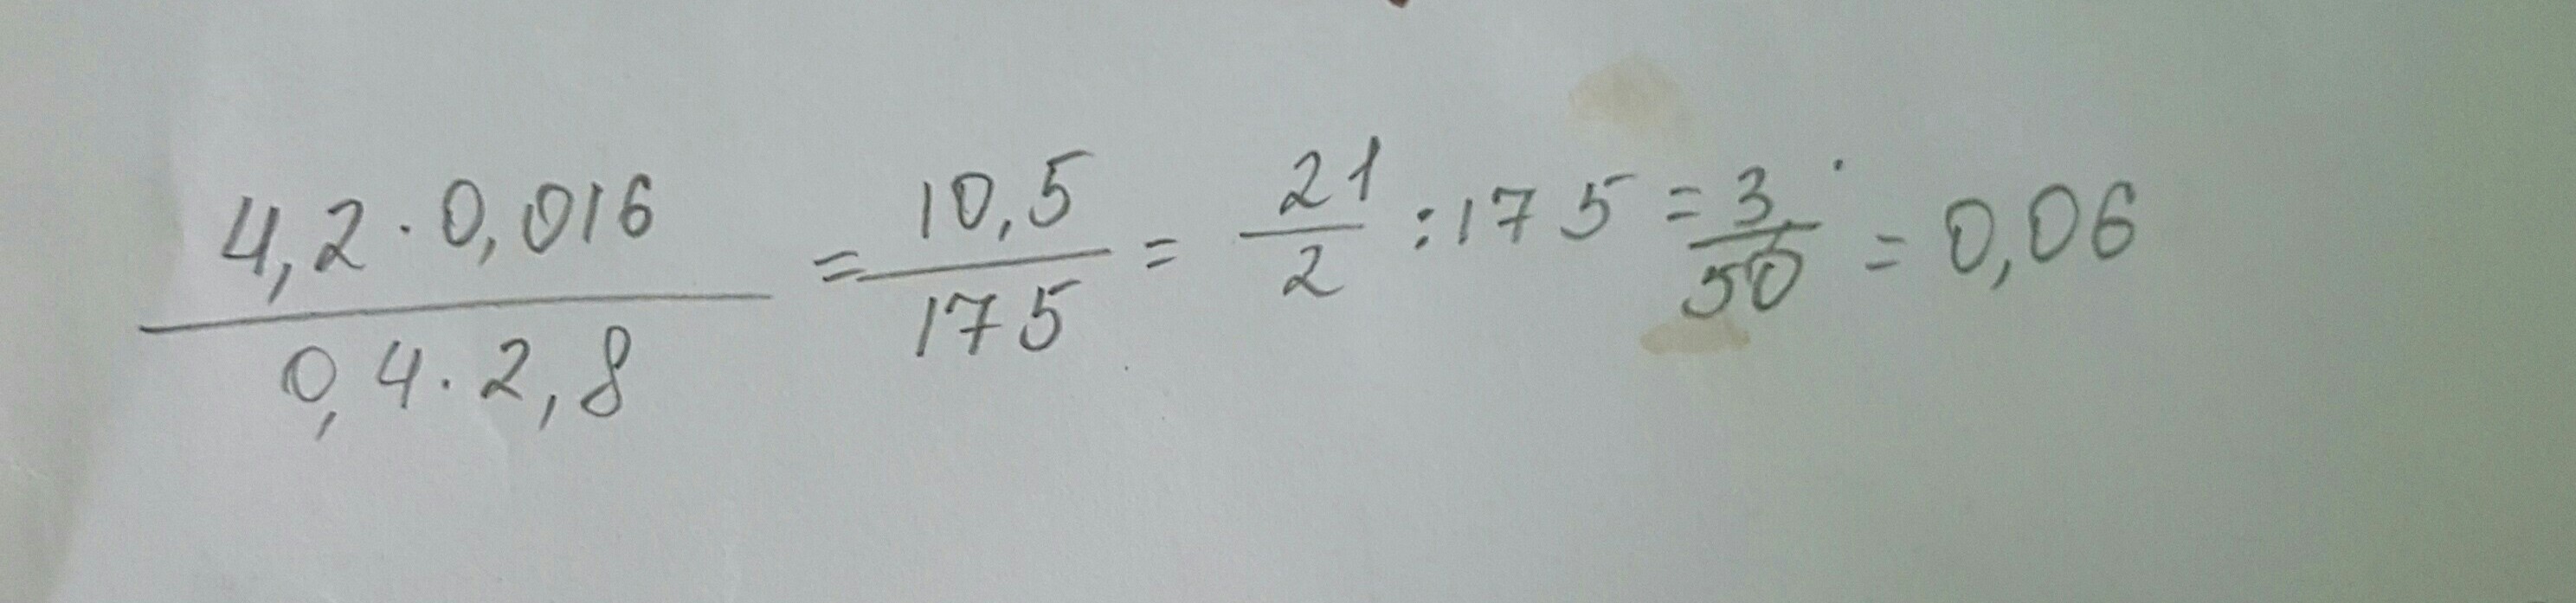 4,2 · 0,016 / 0,4 · 2,8 = 10,5 / 175 = 21/2 : 175 = 3/50 = 0,06